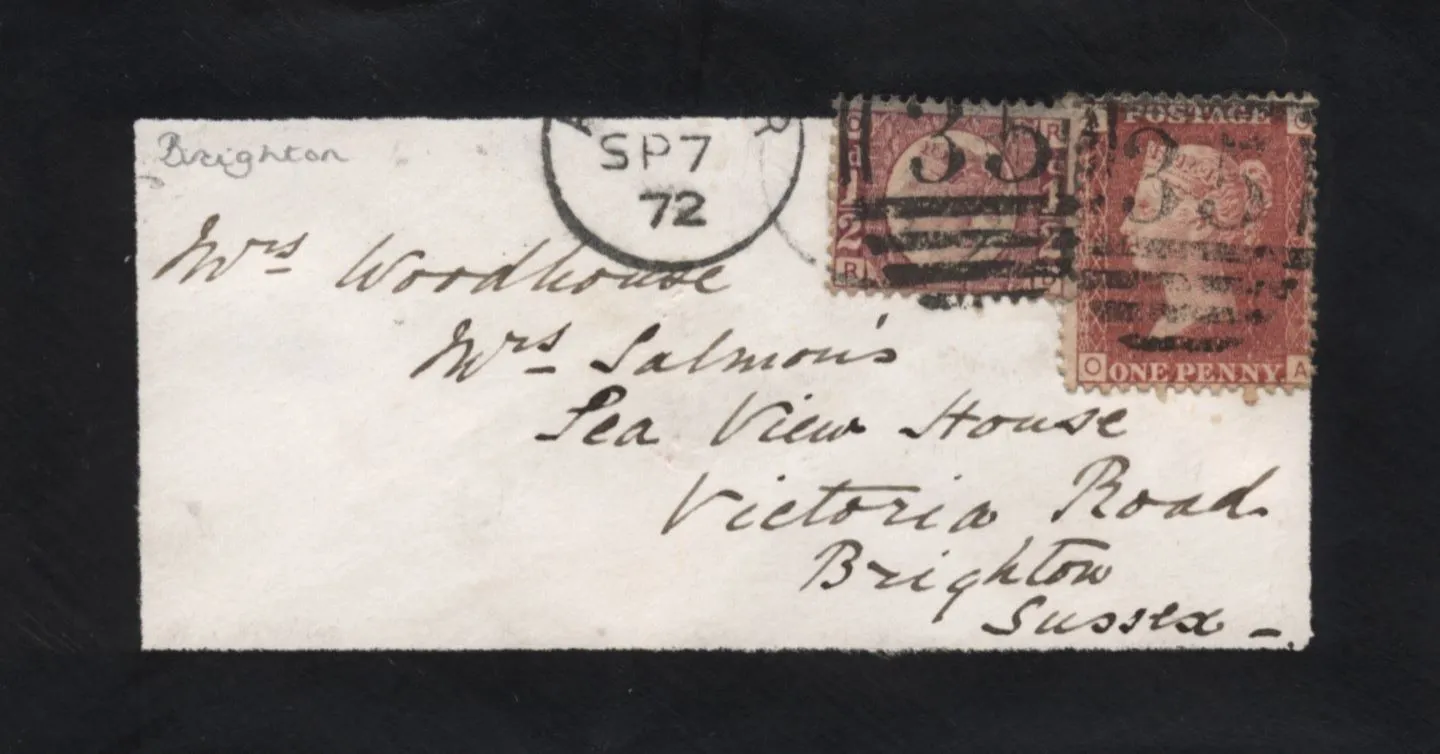 Brighton
SP 7
72
35
35
POSTAGE
O A
ONE PENNY
Mrs Woodhouse
Mrs Salmon's
Sea View House
Victoria Road
Brighton
Sussex -